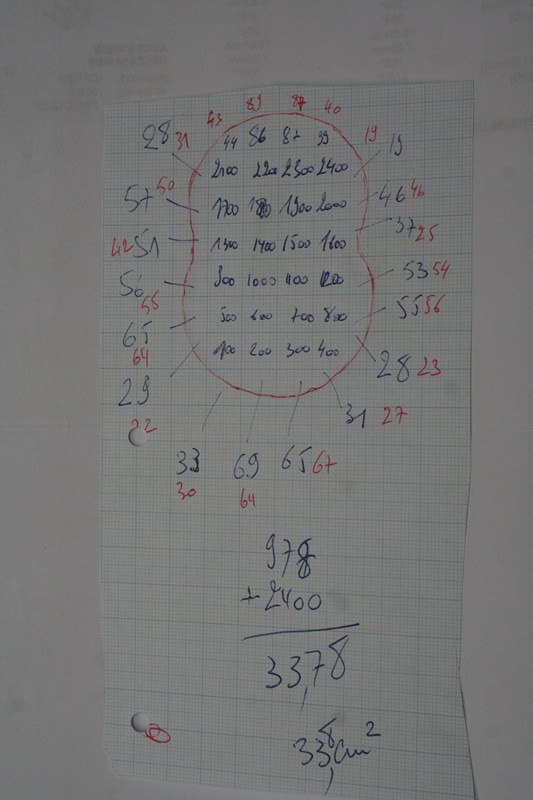 43 89 87 40
28 31 44 86 87 39 19 19
2100 2200 2300 2400
57 50 1700 1800 1900 2000 46 46
42 51 1300 1400 1500 1600 37 25
56 56 900 1000 1100 1200 53 54
65 64 500 600 700 800 55 56
29 22 100 200 300 400 28 23
31 27
33 69 65 67
30 64
978
+2400
33,78
33,8 cm²